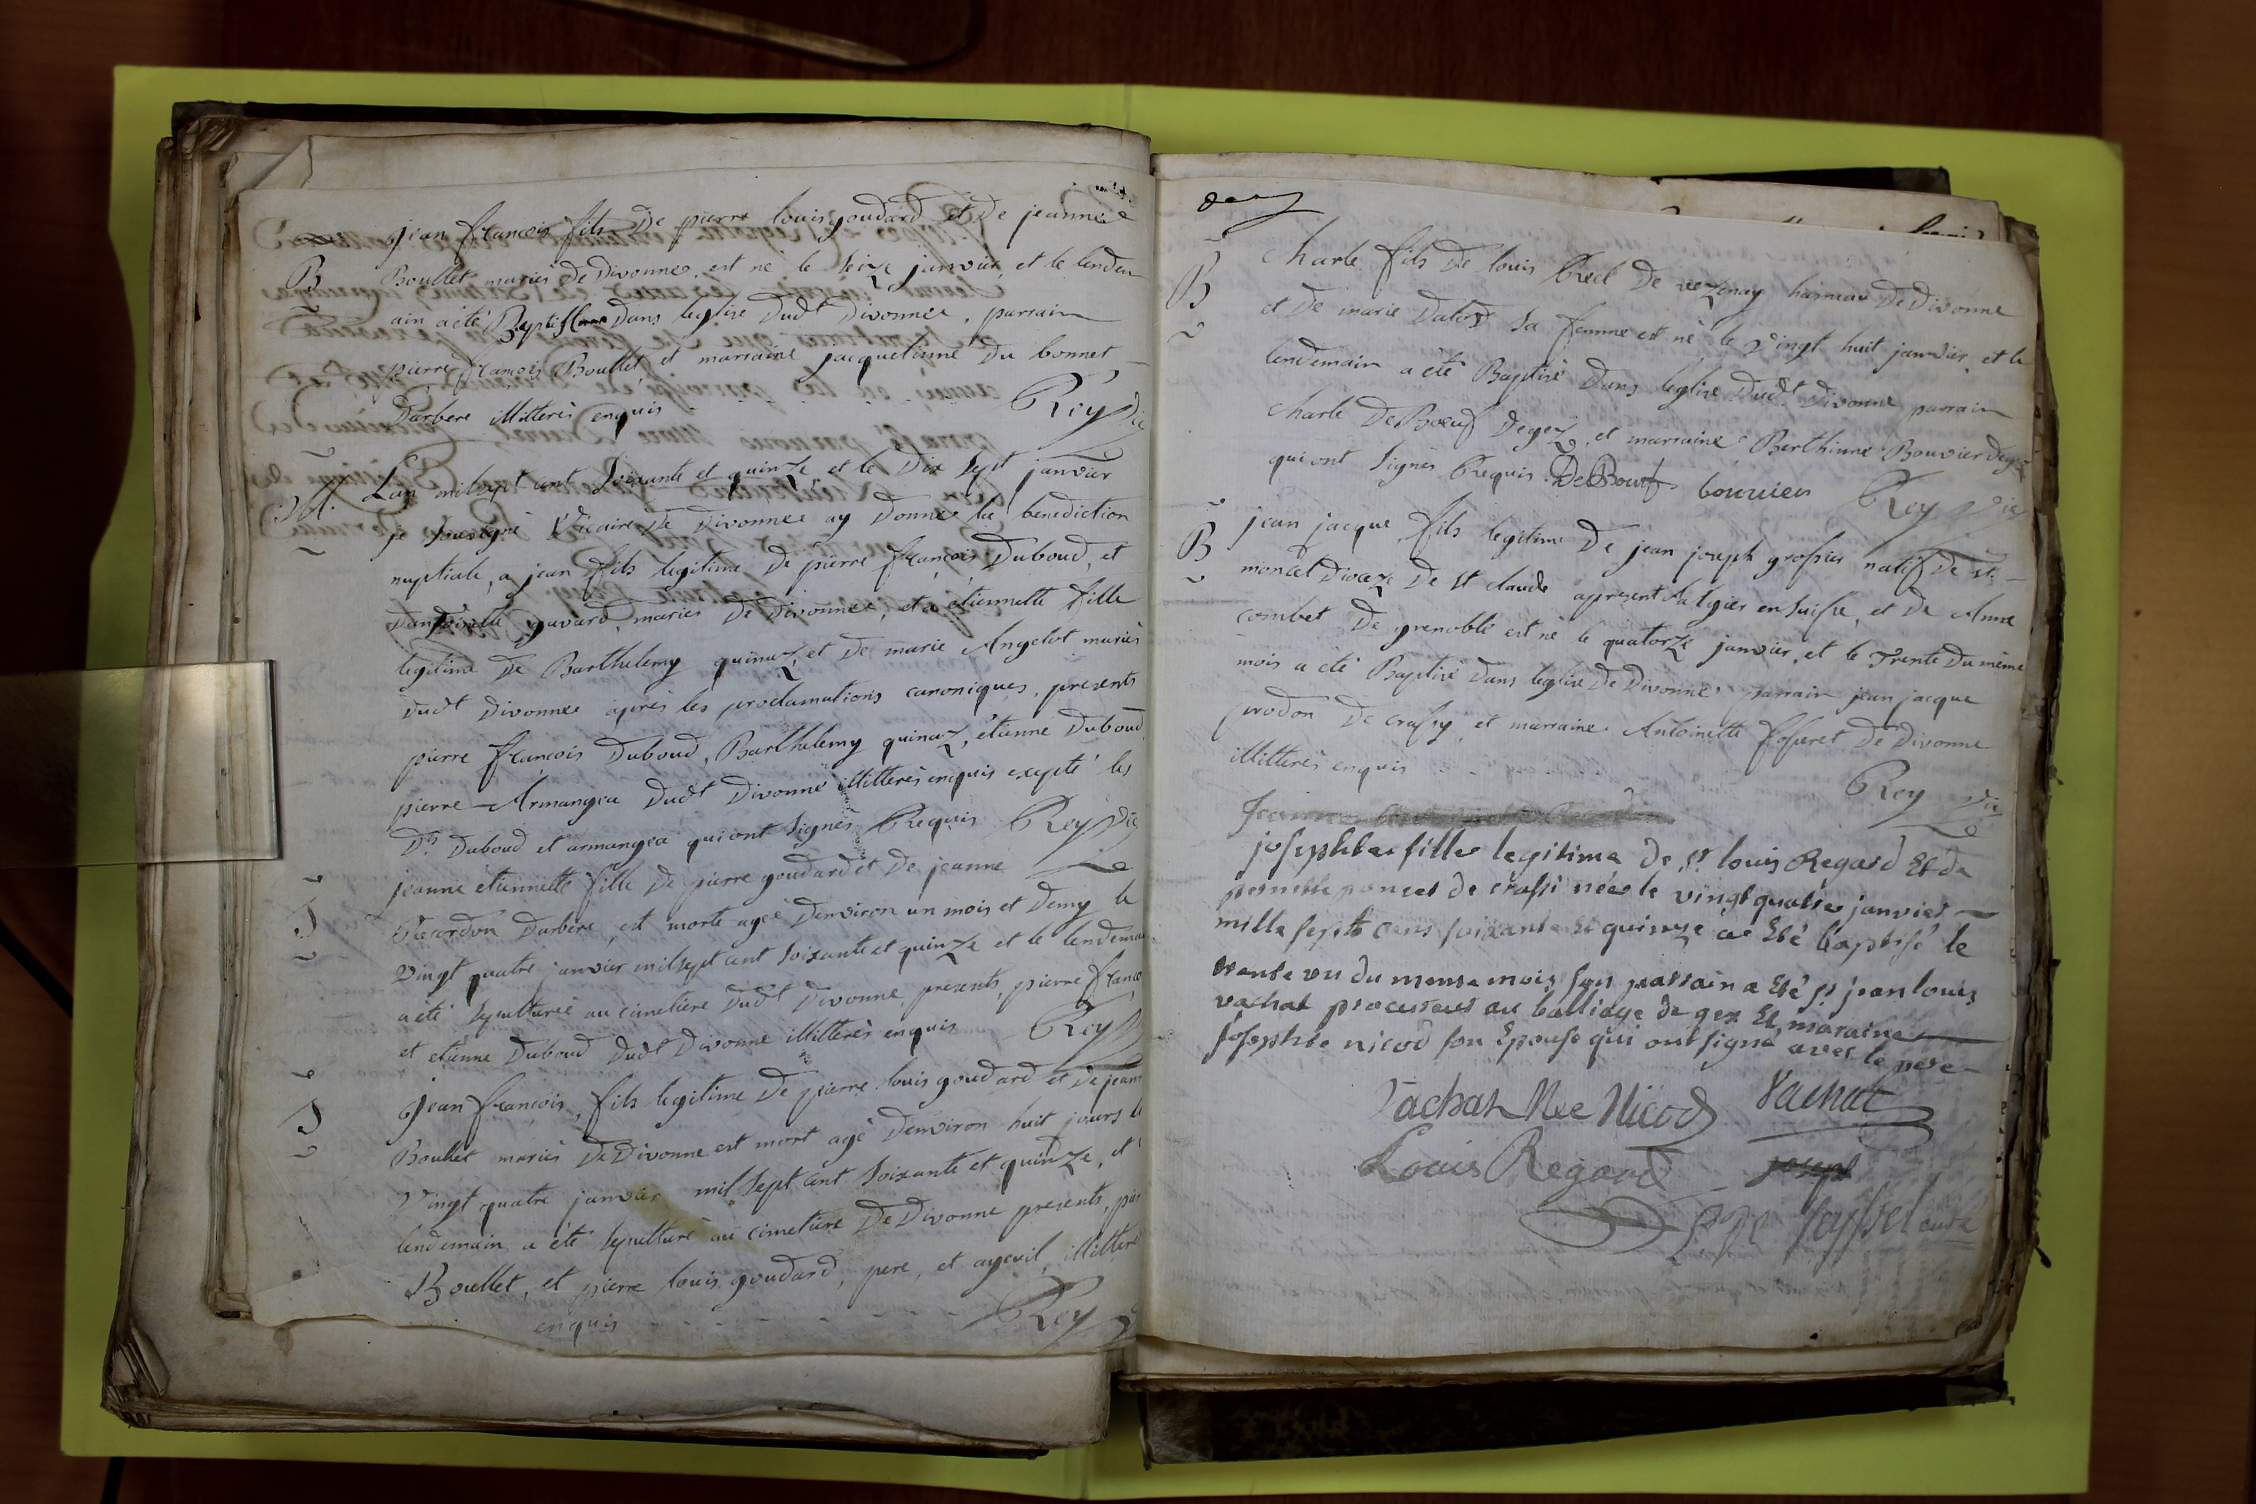 jean francois fils De pierre louis goudard et De jeanne
B Boullet mariés De Divonne, est né le seize janvier, et le lendem
ain a eté Baptisé Dans leglise Dudt Divonne, parrain
pierre francois Boullet et marraine jacquelinne Du bonnet
Darbere illitteres enquis Rey Vic
M. L'an mil sept cent soixante et quinze, et le Dix sept janvier
je soussigné Vicaire De Divonne ay Donné la benediction
nuptiale, a jean fils legitime De pierre francois Duboud, et
Dantoinette gavard, mariés De Divonne, et a etiennette fille
legitime De Barthelemy quinaz, et De marie Angelot mariés
Dudt Divonne après les proclamations canoniques, presents
pierre francois Duboud, Barthelemy quinaz, etienne Duboud
pierre Armangea Dudt Divonne illitterés enquis excepté les
Ds Duboud et armangea qui ont signés Requis Rey Vic
jeanne etiennette fille De pierre goudard et De jeanne
S Recordon Darbere, est morte ageé Denviron un mois et Demy le
vingt quatre janvier mil sept cent soixante et quinze et le lendemai
a eté sepulturée au cimetiere Dudt Divonne, presents, pierre franco
et etienne Duboud Dudt Divonne illitterés enquis Rey
jean francois, fils legitime De pierre louis goudard et De jean
S Boullet mariés De Divonne est mort agé Denviron huit jours le
Vingt quatre janvier mil sept cent soixante et quinze, et
lendemain a eté sepulturé au cimetiere De Divonne presents, pier
Boullet, et pierre louis goudard, pere, et ayeuil, illittere
enquis Rey
Charle fils De louis Recl De vezenay hameau De Divonne
B et De marie Dalod sa femme est né le vingt huit janvier, et le
lendemain a eté Baptisé Dans leglise Dudt Divonne parrain
charle De Boeuf Degex, et marraine Berthinne Bouvier Degex
qui ont signés Requis. DeBoeuf bouvier Rey Vic
jean jacque fils legitime De jean joseph grossier natif De st
B moncel Dioceze De st claude apresent a ligier en suisse, et De Anne
combet De grenoble est né le quatorze janvier, et le Trente Du même
mois a eté Baptisé Dans leglise De Divonne parrain jean jacque
prodon De crassy, et marraine Antoinette fosseret De Divonne
illitterés enquis Rey Vic
josephte fille legitime de sr louis Regard Et de
pernette poncet de crassi née le vingt quatre janvier
mille sept cens soixante et quinze a eté Baptisé le
trente un du meme mois son parrain a eté sr jean louis
vachat procureur au balliage de gex Et maraine
josephte nicod son Epouse qui ont signé avec le pere
Vachat Née Nicod Vachat
Louis Regard
Seyssel curé